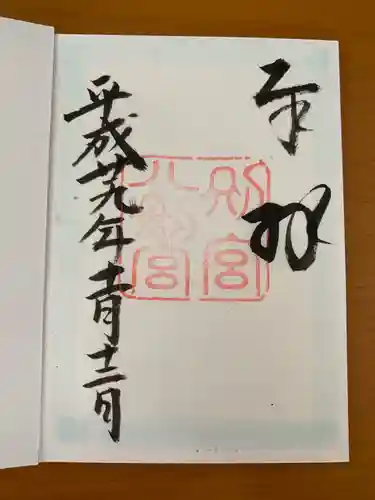 奉拝
別宮
八幡宮
平成廿九年十一月十二日